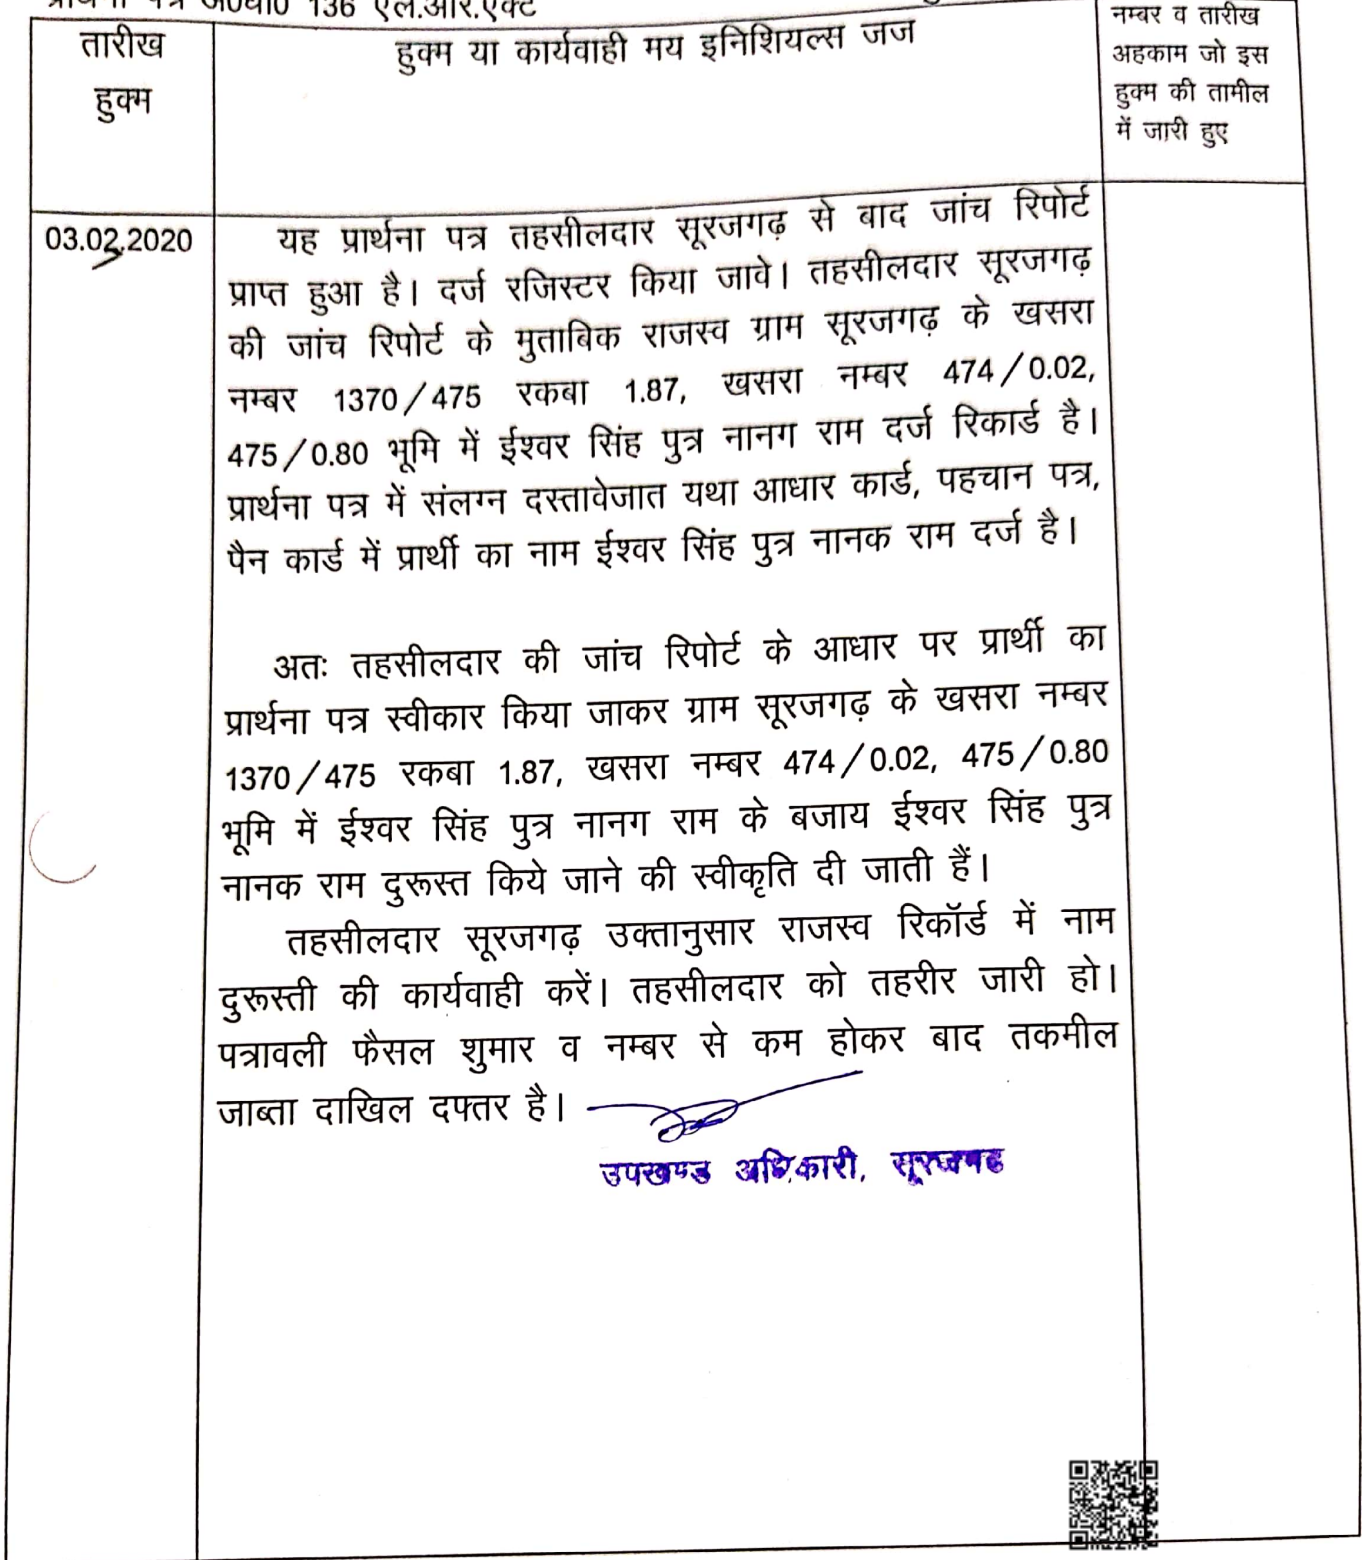 प्रार्थना पत्र अ०धा० 136 एल.आर.एक्ट
तारीख
हुक्म
हुक्म या कार्यवाही मय इनिशियल्स जज
नम्बर व तारीख
अहकाम जो इस
हुक्म की तामील
में जारी हुए
03.02.2020
यह प्रार्थना पत्र तहसीलदार सूरजगढ़ से बाद जांच रिपोर्ट
प्राप्त हुआ है। दर्ज रजिस्टर किया जावे। तहसीलदार सूरजगढ़
की जांच रिपोर्ट के मुताबिक राजस्व ग्राम सूरजगढ़ के खसरा
नम्बर 1370/475 रकबा 1.87, खसरा नम्बर 474/0.02,
475/0.80 भूमि में ईश्वर सिंह पुत्र नानग राम दर्ज रिकार्ड है।
प्रार्थना पत्र में संलग्न दस्तावेजात यथा आधार कार्ड, पहचान पत्र,
पैन कार्ड में प्रार्थी का नाम ईश्वर सिंह पुत्र नानक राम दर्ज है।
अतः तहसीलदार की जांच रिपोर्ट के आधार पर प्रार्थी का
प्रार्थना पत्र स्वीकार किया जाकर ग्राम सूरजगढ़ के खसरा नम्बर
1370/475 रकबा 1.87, खसरा नम्बर 474/0.02, 475/0.80
भूमि में ईश्वर सिंह पुत्र नानग राम के बजाय ईश्वर सिंह पुत्र
नानक राम दुरूस्त किये जाने की स्वीकृति दी जाती हैं।
तहसीलदार सूरजगढ़ उक्तानुसार राजस्व रिकॉर्ड में नाम
दुरूस्ती की कार्यवाही करें। तहसीलदार को तहरीर जारी हो।
पत्रावली फैसल शुमार व नम्बर से कम होकर बाद तकमील
जाब्ता दाखिल दफ्तर है।
उपखण्ड अधिकारी, सूरजगढ